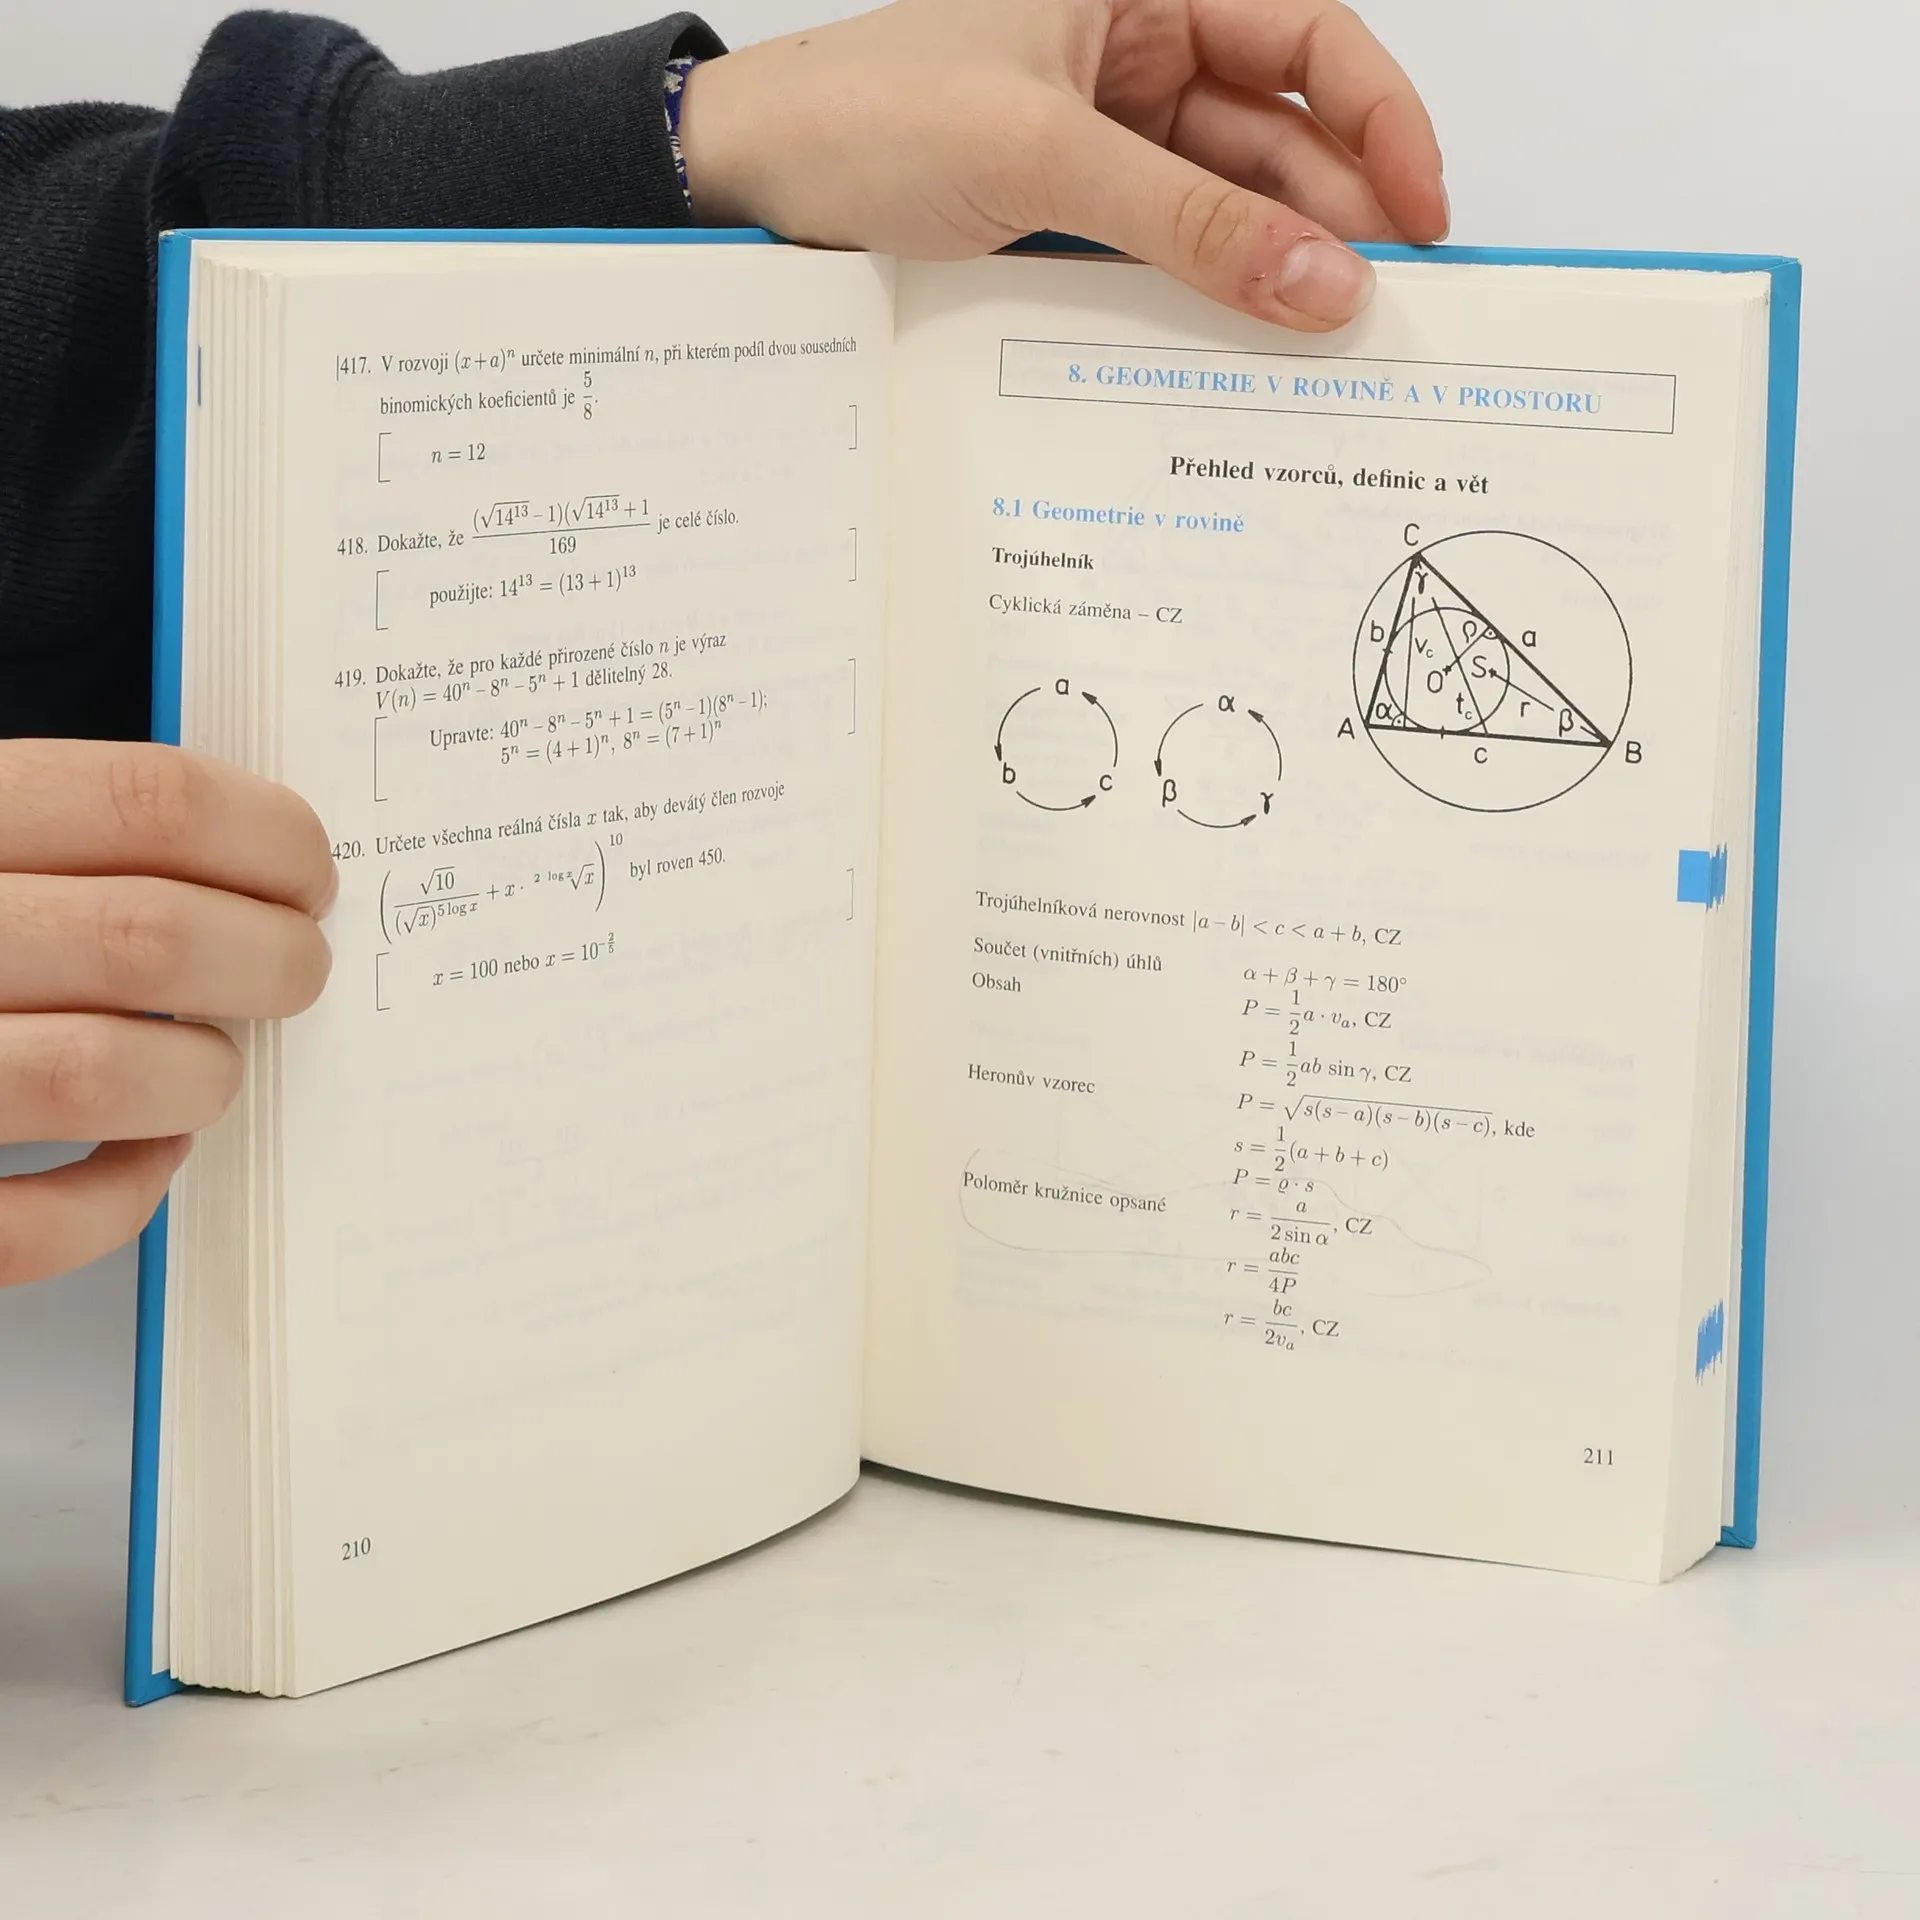 417. V rozvoji (x+a)ⁿ určete minimální n, při kterém podíl dvou sousedních
binomických koeficientů je 5/8.
n = 12
418. Dokažte, že (√14¹³ – 1)(√14¹³ + 1 / 169 je celé číslo.
použijte: 14¹³ = (13 + 1)¹³
419. Dokažte, že pro každé přirozené číslo n je výraz
V(n) = 40ⁿ – 8ⁿ – 5ⁿ + 1 dělitelný 28.
Upravte: 40ⁿ – 8ⁿ – 5ⁿ + 1 = (5ⁿ – 1)(8ⁿ – 1);
5ⁿ = (4 + 1)ⁿ, 8ⁿ = (7 + 1)ⁿ
420. Určete všechna reálná čísla x tak, aby devátý člen rozvoje
(√10 / (√x)^(5 log x) + x · ^(2 log x)√x)¹⁰ byl roven 450.
x = 100 nebo x = 10^(–2/5)
210
8. GEOMETRIE V ROVINĚ A V PROSTORU
Přehled vzorců, definic a vět
8.1 Geometrie v rovině
Trojúhelník
Cyklická záměna – CZ
a
b
c
α
β
γ
C
γ
b
v_c
ρ
a
O
S
t_c
r
A
α
β
B
c
Trojúhelníková nerovnost |a – b| < c < a + b, CZ
Součet (vnitřních) úhlů α + β + γ = 180°
Obsah P = 1/2 a · v_a, CZ
P = 1/2 ab sin γ, CZ
Heronův vzorec P = √(s(s – a)(s – b)(s – c)), kde
s = 1/2 (a + b + c)
P = ϱ · s
Poloměr kružnice opsané r = a / 2 sin α, CZ
r = abc / 4P
r = bc / 2v_a, CZ
211